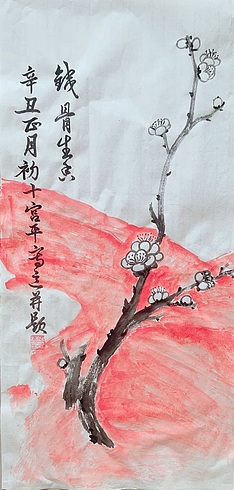 铁骨生香
辛丑正月初十宫平寫之并题